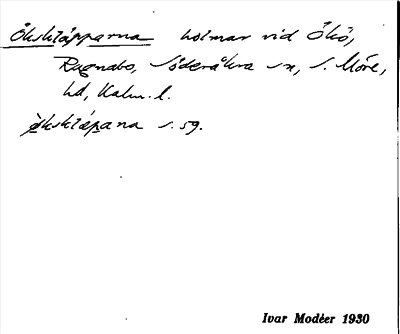 Ökskläpparna holmar vid Ökö,
Ragnabo, Söderåkra sn, S. Möre,
hd, Kalm. l.
økskläpana s. 59.
Ivar Modéer 1930